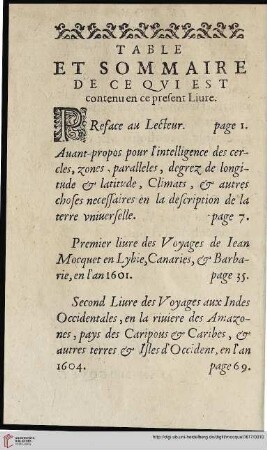 TABLE
ET SOMMAIRE
DE CE QVI EST
contenu en ce present Liure.
PReface au Lecteur. page 1.
Auant-propos pour l'intelligence des cer-
cles, zones, paralleles, degrez de longi-
tude & latitude, Climats, & autres
choses necessaires en la description de la
terre vniuerselle. page 7.
Premier liure des Voyages de Iean
Mocquet en Lybie, Canaries, & Barba-
rie, en l'an 1601. page 35.
Second Liure des Voyages aux Indes
Occidentales, en la riuiere des Amazo-
nes, pays des Caripous & Caribes, &
autres terres & Isles d'Occident, en l'an
1604. page 69.